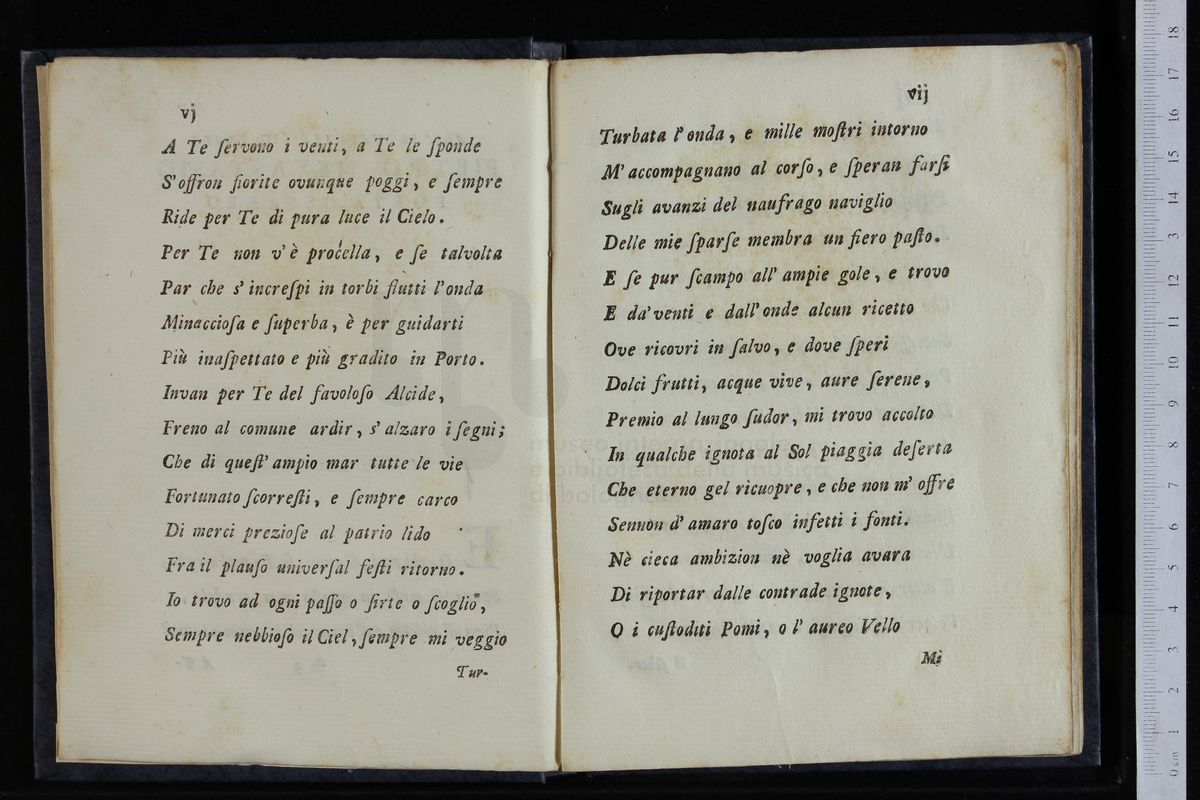 vj
A Te ſervono i venti, a Te le ſponde
S' offron fiorite ovunque poggi, e ſempre
Ride per Te di pura luce il Cielo.
Per Te non v' è procella, e ſe talvolta
Par che s' increſpi in torbi flutti l' onda
Minaccioſa e ſuperba, è per guidarti
Più inaſpettato e più gradito in Porto.
Invan per Te del favoloſo Alcide,
Freno al comune ardir, s' alzaro i ſegni;
Che di queſt' ampio mar tutte le vie
Fortunato ſcorreſti, e ſempre carco
Di merci prezioſe al patrio lido
Fra il plauſo univerſal feſti ritorno.
Io trovo ad ogni paſſo o ſirte o ſcoglio,
Sempre nebbioſo il Ciel, ſempre mi veggio
Tur-
vij
Turbata l' onda, e mille moſtri intorno
M' accompagnano al corſo, e ſperan farſi
Sugli avanzi del naufrago naviglio
Delle mie ſparſe membra un fiero paſto.
E ſe pur ſcampo all' ampie gole, e trovo
E da' venti e dall' onde alcun ricetto
Ove ricovri in ſalvo, e dove ſperi
Dolci frutti, acque vive, aure ſerene,
Premio al lungo ſudor, mi trovo accolto
In qualche ignota al Sol piaggia deſerta
Che eterno gel ricuopre, e che non m' offre
Sennon d' amaro toſco infetti i fonti.
Nè cieca ambizion nè voglia avara
Di riportar dalle contrade ignote,
O i cuſtoditi Pomi, o l' aureo Vello
Mi
museo internazionale
e biblioteca della musica
di bologna
18
17
16
15
14
13
12
11
10
9
8
7
6
5
4
3
2
1
0 cm